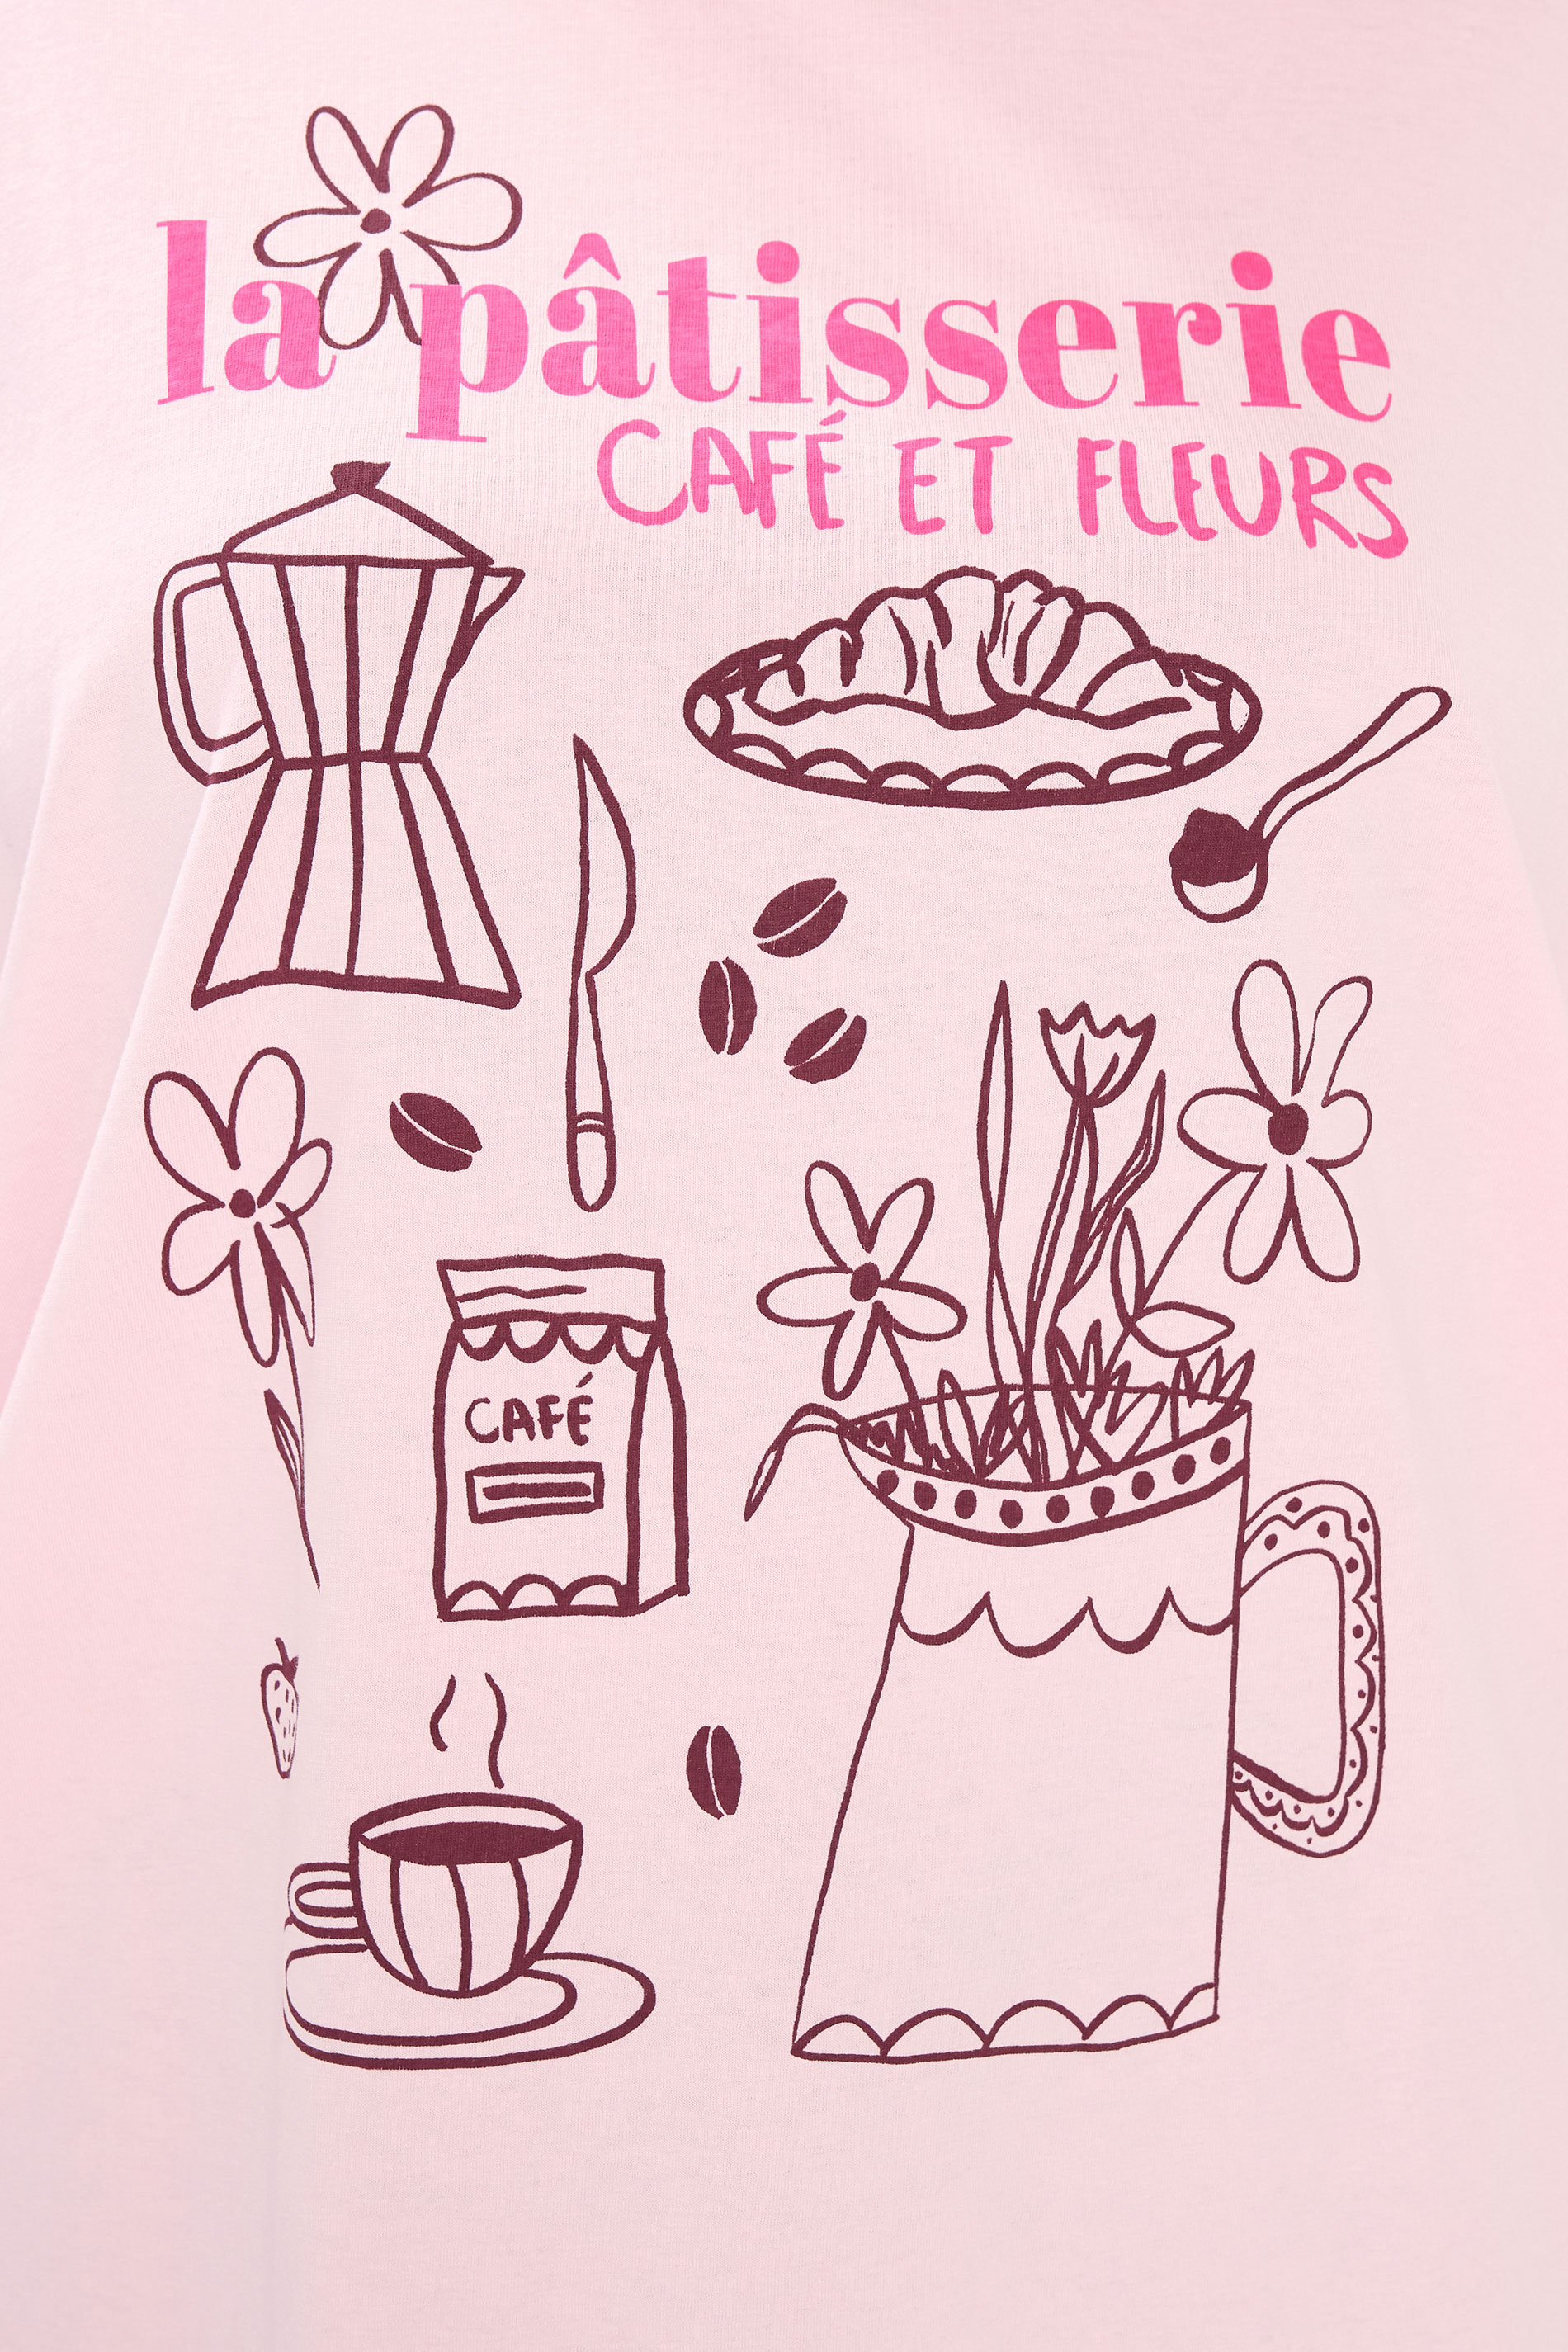 la pâtisserie
CAFÉ ET FLEURS
CAFÉ